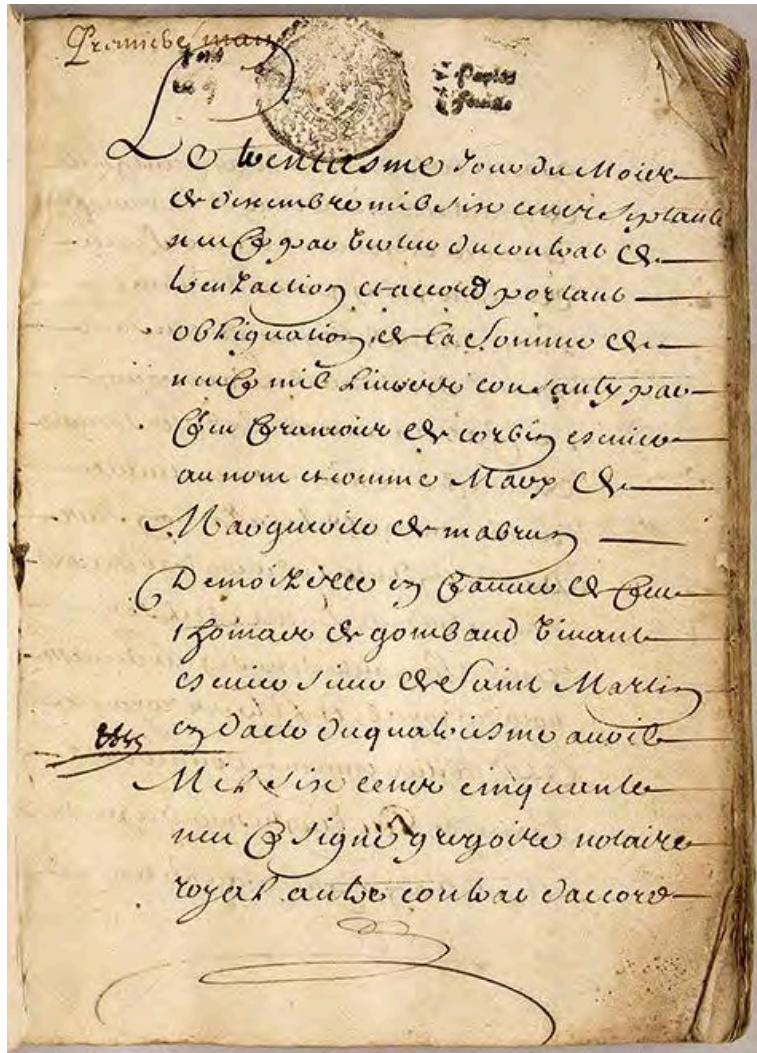 Premiere main
papier
feuille
Le trentiesme Jour du Moier
de decembre mil six cener septante
neuf par vertu du contrat de
tranzaction et accord portant
obligation de la somme de
neuf mil livres consanty par
feu francoier de corbin escuier
au nom et comme Mary de
Marguerite de mabrun
Demoizelle en faveur de feu
thomas de gombaud vivant
escuier sieur de Saint Martin
en dacte du quatriesme avril
Mil six cener cinquante
neuf signé gregoire notaire
royal autre contrat daccord